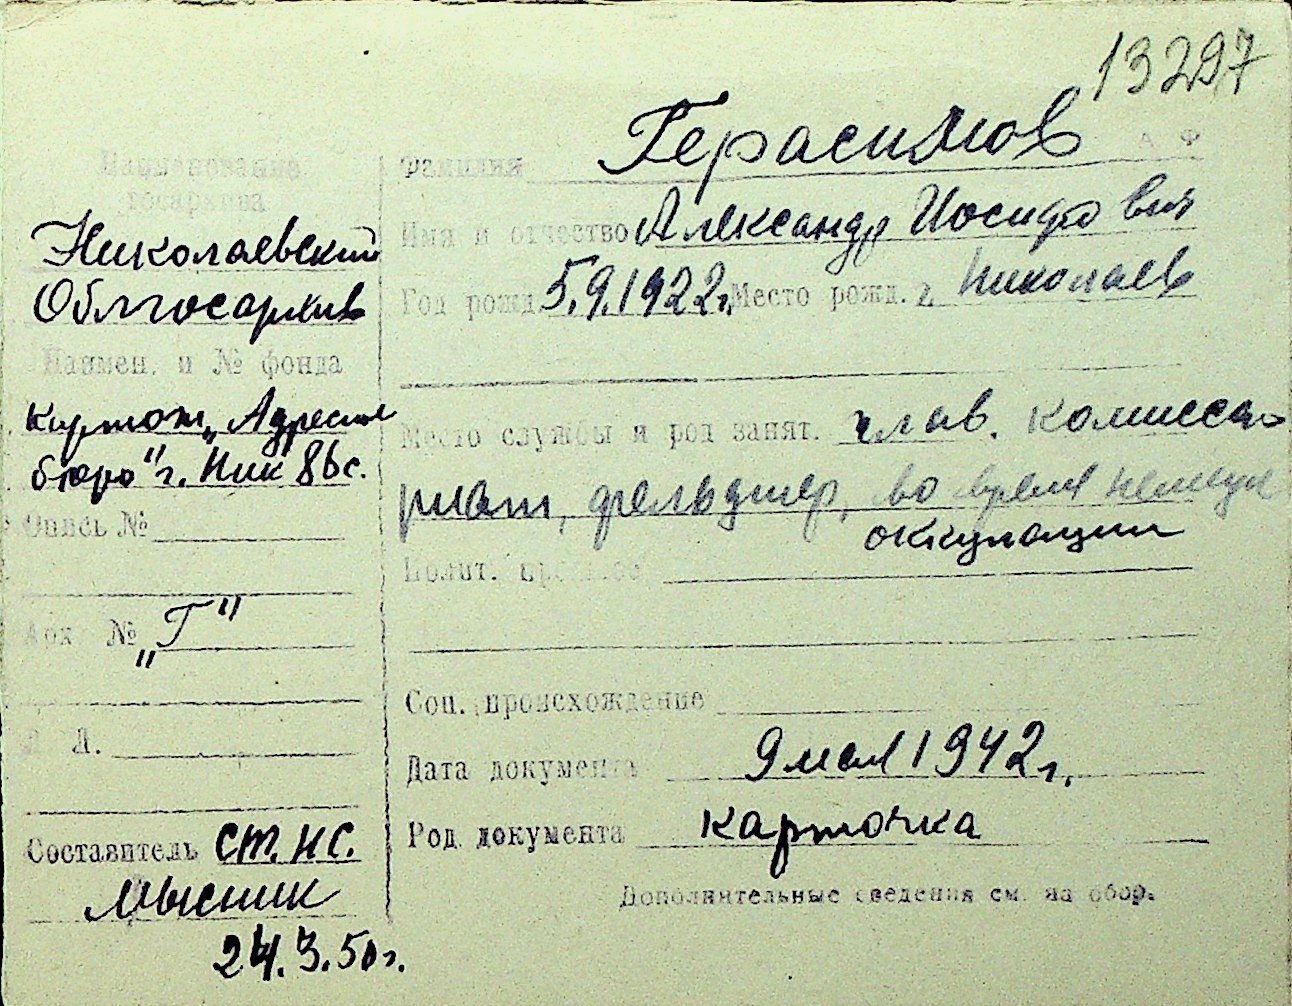 13297
Наименование
госархива
Николаевский
Облгосархив
Наимен. и № фонда
Картот. „Адресное
бюро" г. Ник
Опись №
№ „Г"
Л.
Составитель ст. н.с.
Мысник
24.3.50г.
А Ф
Фамилия Герасимов
Имя и отчество Александр Иосифович
Год рожд. 5.9.1922г. Место рожд. г. Николаев
Место службы и род занят. глав. комисса
риат, фельдшер, во время немецк
оккупации
Полит.
Соц. происхождение
Дата документа 9 мая 1942г.
Род документа карточка
Дополнительные сведения см. на обор.